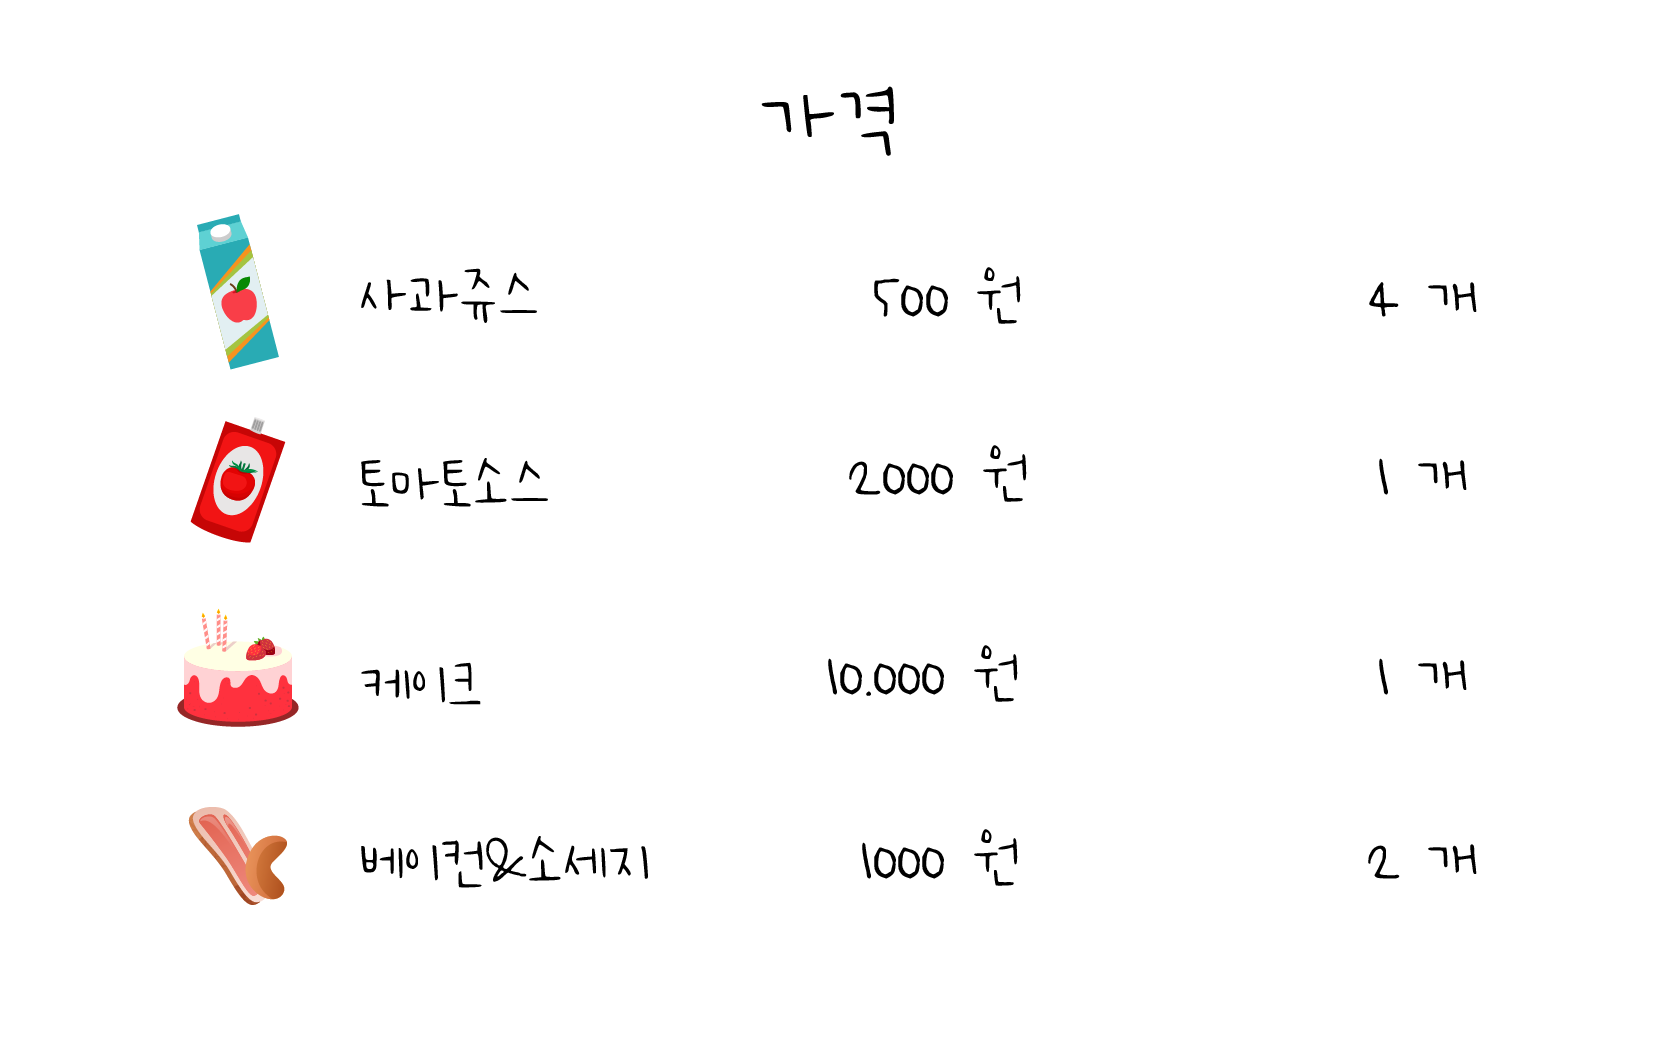 가격
사과쥬스 500 원 4 개
토마토소스 2000 원 1 개
케이크 10.000 원 1 개
베이컨&소세지 1000 원 2 개